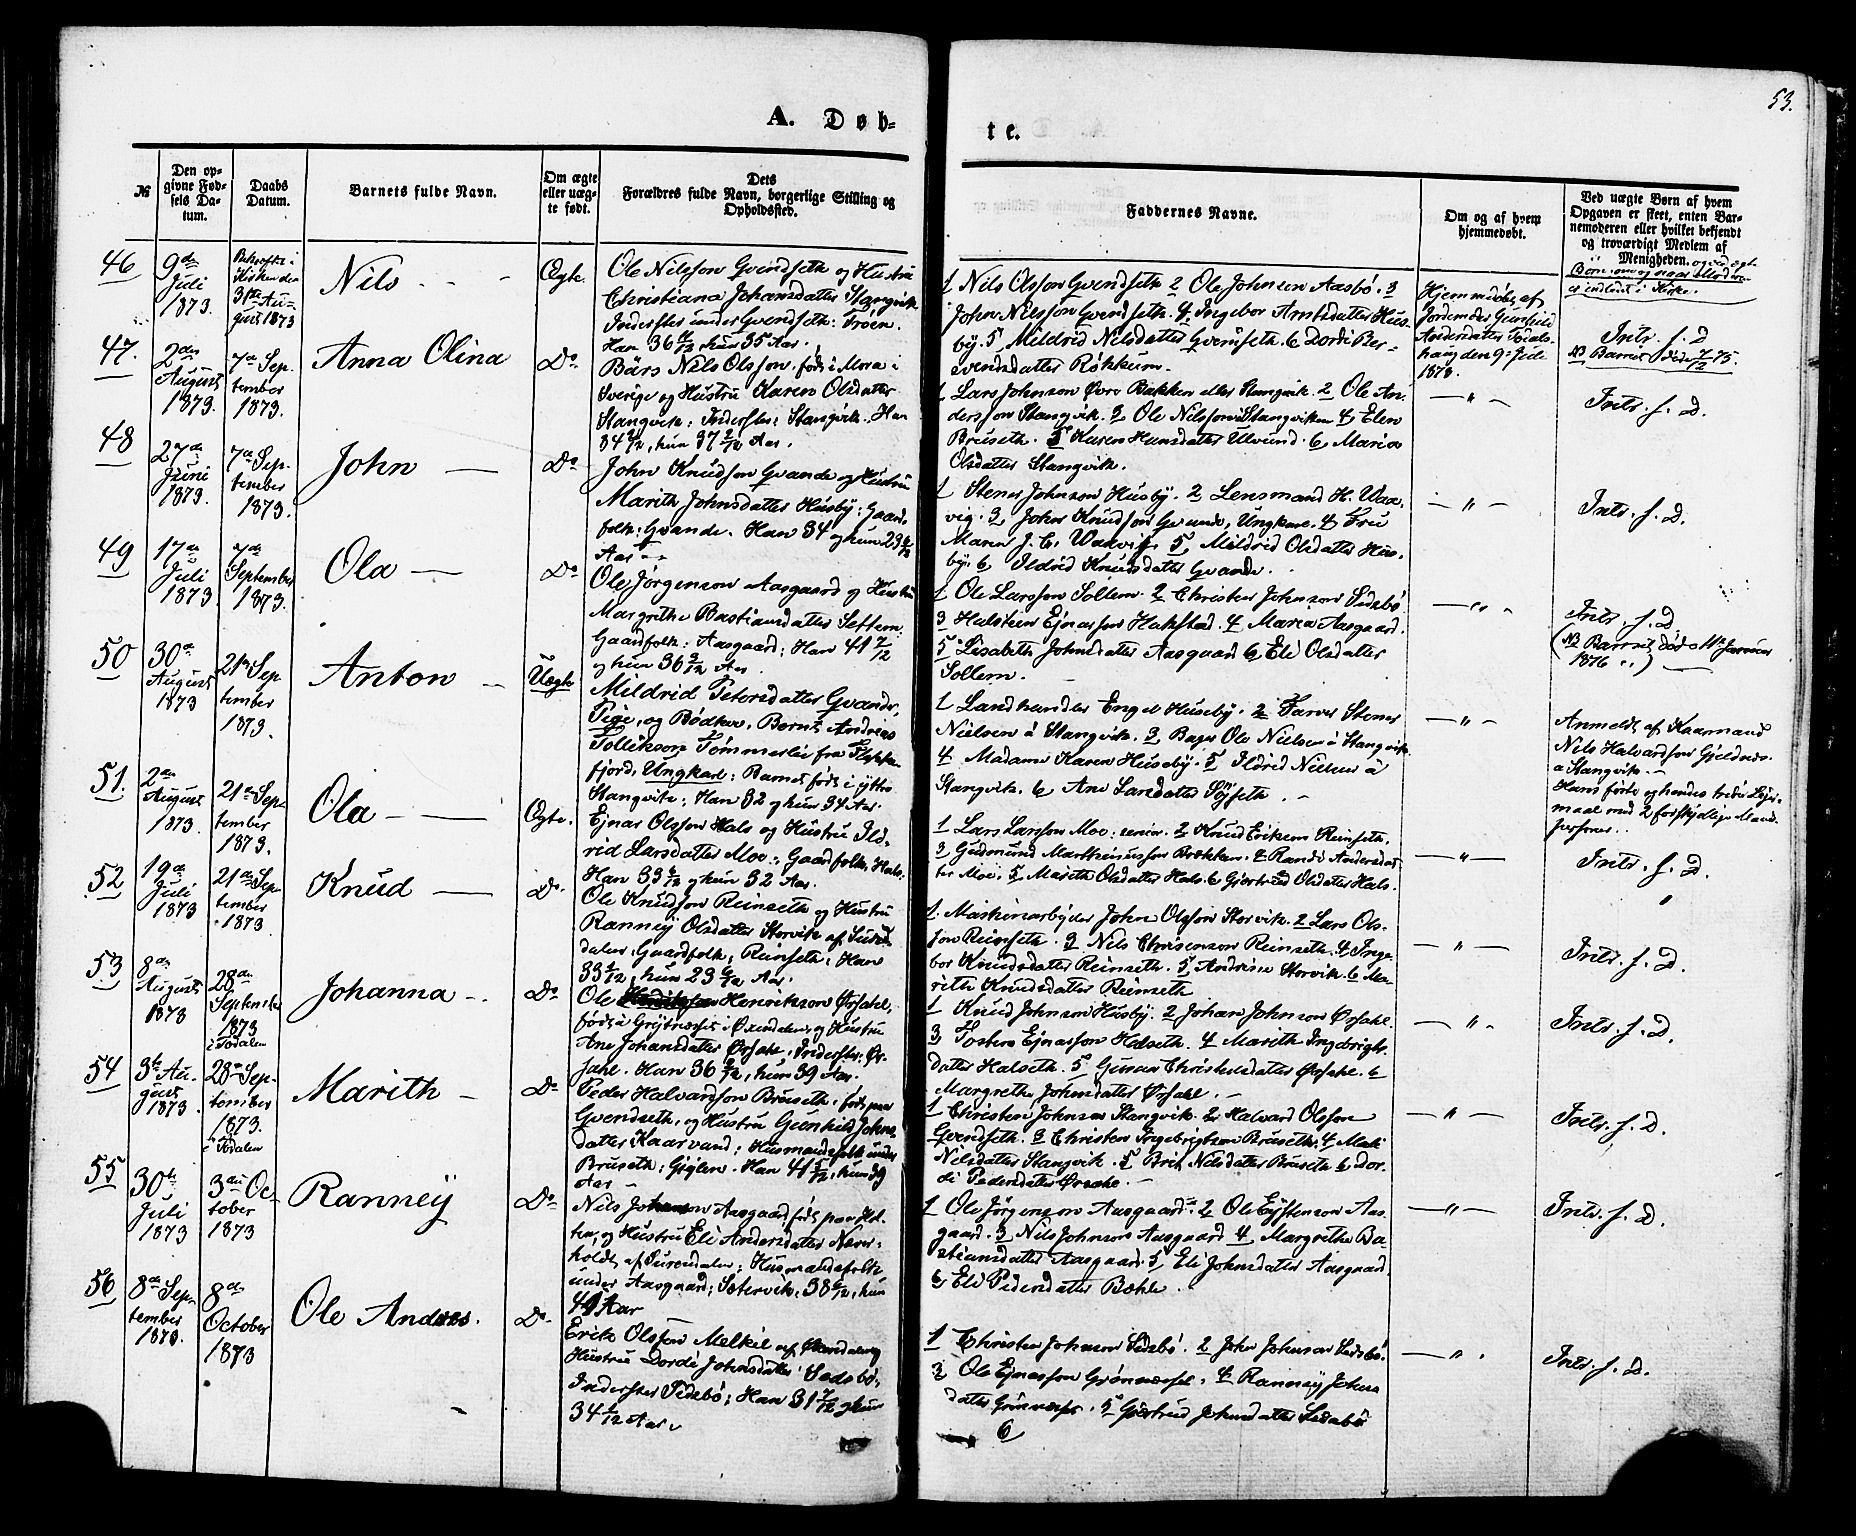 53.
A. Døb-
te.
№
Den op-
givne Fød-
sels Da-
tum.
Daabs
Datum.
Barnets fulde Navn.
Om ægte
eller uæg-
te født.
Dets
Forældres fulde Navn, borgerlige Stilling og
Opholdssted.
Faddernes Navne.
Om og af hvem
hjemmedøbt.
Ved uægte Børn af hvem
Opgaven er skeet, enten Bar-
nemoderen eller hvilket bekjendt
og troværdigt Medlem af
Menigheden.
46
9de
Juli
1873.
Kirken den
31te Au-
gust 1873
Nils
Ægte.
Ole Nilsson Gvendseth og Hustru
Christiana Johansdatter Stangvik
Inderster under Gvendseth: Trøen.
Han 36 /12, hun 35 Aar.
1 Nils Olsson Gvendseth 2 Ole Johnson Aasbø. 3
John Nilsson Gvendseth. 4, Ingebor Arnsdatter Hus-
by. 5 Mildrid Nilsdatter Gvenseth. 6 Dordi Ber-
svendsdatter Røkkum.
Hjemmedøbt af
Jordemoder Gunhild
Andersdatter Todals-
haug den 9de Juli
1873.
Intr. f. D
47.
2den
August
1873.
7de Sep-
tember
1873.
Anna Olina
Do
Bärs Nils Olsson, født i Mora i
Sverige og Hustru Karen Olsdatter
Stangvik: Inderster: Stangvik. Han
34 /12, hun 37 /12 Aar.
1 Lars Johnson Øvre Bakken eller Stangvik. 2 Ole An-
dersson Stangvik. 3 Ole Nilsson Stangviken 4 Elen
Bruseth. 5 Karen Hansdatter Ulvund. 6 Maria
Olsdatter Stangvik.
— " —
Intr. f. D.
48
27de
Juni
1873.
7de Sep-
tember
1873.
John —
Do
John Knudson Gvande og Hustru
Marith Johnsdatter Husby: Gaard-
folk: Gvande. Han 34 og hun 23 /12
Aar.
1 Stener Johnson Husby. 2 Lensmand H. Waa-
vig. 3 John Knudson Gvande, Ungkarl. 4 Fru
Maren J. C. Waavik. 5, Mildrid Olsdatter Hus-
by. 6 Ildrid Knudsdatter Gvande.
— " —
Intr. f. D.
49
17de
Juli
1873.
7de
September
1873.
Ola —
Do
Ole Jørgenson Aasgaard og Hustru
Margrethe Bastiansdatter Settem:
Gaardfolk: Aasgaard: Han 41 7/12
og hun 36 /12 Aar.
1 Ole Larsson Sollem. 2 Christen Johnson Sedsbø
3 Halsten Ejnarsson Halsstad. 4 Maria Aasgaard.
5 Lisabeth Johnsdatter Aasgaard 6 Eli Olsdatter
Sollem.
— " —
Intr. f. D
50
30te
August
1873
21de Sep
tember
1873.
Anton —
Uægte
Mildrid Petersdatter Gvande,
Pige, og Bødker, Bernt Andreas
fjord, Ungkarl: Barnet født i ytre
Stangvik; Han 32 og hun 34 Aar.
1 Landhandler Engel Huseby. 2 Farver Stener
Nielsen à Stangvik. 3 Bager Ole Nielsen à Stangvik.
4 Madame Karen Huseby. 5 Ildrid Nielsen à
Stangvik. 6 Ane Larsdatter Søyseth.
— " —
Anmeldt af Kaarmand
Nils Halvardson Gjeldnes
a Stangvik. —
51.
2den
August
1873.
21de Sep-
tember
1873.
Ola — —
Ægte.
Ejnar Olsson Hals og Hustru Ild-
rid Larsdatter Moe: Gaardfolk: Hals.
Han 33 /12 og hun 32 Aar.
1 Lars Larsson Moe: senior. 2 Knud Eriksen Reinseth.
3 Gudmund Marthinusson Brekken. 4 Randi Andersdat-
ter Moe. 5 Marith Olsdatter Hals. 6 Gjertrud Olsdatter Hals.
— " —
Intr. f. D.
52
19de
Juli
1873
21de Sep-
tember
1873.
Knud —
Do.
Ole Knudson Reinseth og Hustru
Ranney Olsdatter Storvik af Suren-
dalen: Gaardfolk: Reinseth: Han
33 /12, hun 23 /12 Aar.
1. Maskinarbejder John Olsson Storvik. 2 Lars Ols-
son Reinseth. 3 Nils Christenson Reinseth. 4 Inge-
bor Knudsdatter Reinseth. 5 Andrine Storvik. 6 Ma-
rith Knudsdatter Reinseth
— " —
Intr. f. D.
53
8de
August
1873
28de
September
1873
i Todalen
Johanna —
Do
Ole Henrikson Ørsahl,
født à Grytnæset i Øxendalen og Hustru
Ane Johansdatter Ørsahl: Inderster: Ør-
sahl. Han 36 /12, hun 39 Aar.
1 Knud Johnson Husby. 2 Johan Johnson Ørsahl.
3 Tosten Ejnarsson Halseth. 4 Marith Ingebrigts-
datter Halseth. 5 Guruu Christensdatter Ørsahl. 6
Margrethe Johnsdatter Ørsahl. —
— " —
Intr. f. D.
54
3die Au-
gust
1873
28de Sep-
tember
1873.
i Todalen
Marith —
Do
Peder Halvardson Bruseth: født paa
Gvendseth, og Hustru Gunhild Johns-
datter Kaarvand; Husmandsfolk under
Bruseth: Giglen. Han 41 /12, hun 39
Aar —
1 Christen Johnson Stangvik. 2 Halvard Olsson
Gvendseth. 3 Christen Ingebrigtson Bruseth. 4 Mali
Nilsdatter Stangvik. 5 Brit Nilsdatter Bruseth 6 Dor-
di Pedersdatter Ørsahl. —
— " —
Intr. f. D.
55
30te
Juli
1873
3die Oc-
tober
1873
Ranneÿ
Do
Nils Johnson Aasgaard født paa
og Hustru Eli Andersdatter Næver-
holdt af Surendalen; Husmandsfolk
under Aasgaard; Sætervik; 38 /12, hun
41 Aar
1 Ole Jørgenson Aasgaard. 2 Ole Eystenson Aas-
gaard. 3 Nils Johnson Aasgaard 4 Margrethe Ba-
stiansdatter Aasgaard. 5 Eli Johnsdatter Aasgaard.
6 Eli Pedersdatter Bæhle.
— " —
Intr. f. D.
56
8de Sep-
tember
1873.
8de
October
1873
Ole Andreas.
Do.
Erik Olsson Melkil af Øxendalen og
Hustru Dordi Johnsdatter Sedsbø:
Inderster Sedsbø; Han 31 7/12 og hun
34 /12 Aar.
1 Christen Johnson Sedsbø. 2 John Johnson Sedsbø.
3 Ole Ejnarsson Grønnæset. 4 Ranney Johns
datter Grønnæset. 5 Gjertrud Johnsdatter Sedsbø
6
— " .
Intr. f. D.